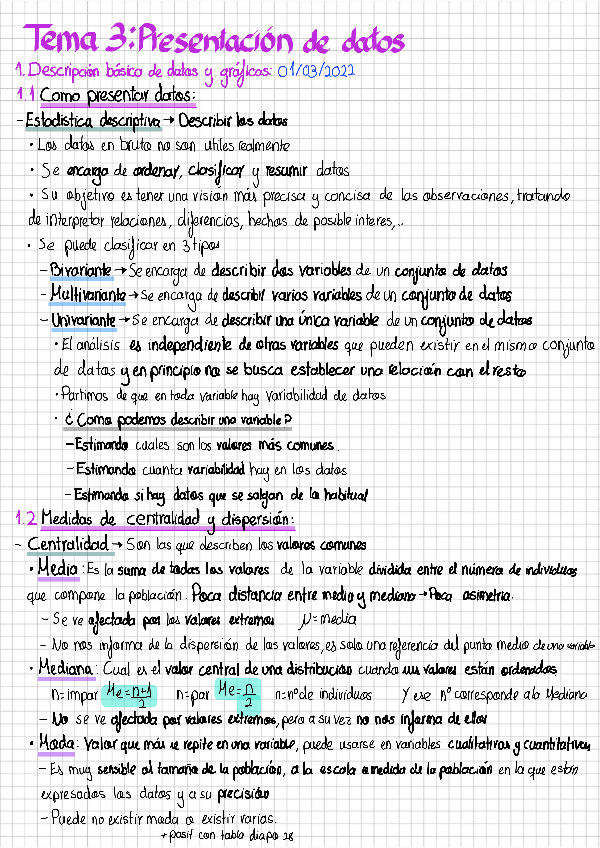 Tema 3: Presentación de datos
1. Descripción básica de datos y gráficos: 01/03/2022
1.1 Como presentar datos:
- Estadística descriptiva → Describir los datos
• Los datos en bruto no son utiles realmente
• Se encarga de ordenar, clasificar y resumir datos
• Su objetivo es tener una vision más precisa y concisa de las observaciones, tratando
de interpretar relaciones, diferencias, hechos de posible interes,..
• Se puede clasificar en 3 tipos
- Bivariante → Se encarga de describir dos variables de un conjunto de datos
- Multivariante → Se encarga de describir varias variables de un conjunto de datos
- Univariante → Se encarga de describir una única variable de un conjunto de datos
• El análisis es independiente de otras variables que pueden existir en el mismo conjunto
de datos y en principio no se busca establecer una relación con el resto
• Partimos de que en toda variable hay variabilidad de datos
• ¿Como podemos describir una variable?
- Estimando cuales son los valores más comunes.
- Estimando cuanta variabilidad hay en los datos
- Estimando si hay datos que se salgan de lo habitual
1.2 Medidas de centralidad y dispersión:
- Centralidad → Son las que describen los valores comunes
• Media: Es la suma de todos los valores de la variable dividida entre el número de individuos
que compone la población. Poca distancia entre media y mediana → Poca asimetria.
- Se ve afectada por los valores extremos μ = media
- No nos informa de la dispersión de los valores, es solo una referencia del punto medio de una variable
• Mediana: Cual es el valor central de una distribución cuando sus valores están ordenados
n= impar Me = n+1/2 n= par Me = n/2 n= nº de individuos Y ese nº corresponde a la Mediana
- No se ve afectada por valores extremos, pero a su vez no nos informa de ellos
• Moda: Valor que más se repite en una variable, puede usarse en variables cualitativas y cuantitativas
- Es muy sensible al tamaño de la población, a la escala o medida de la población en la que están
expresados los datos y a su precisión
- Puede no existir moda o existir varias.
+ posit con tabla diapo 28